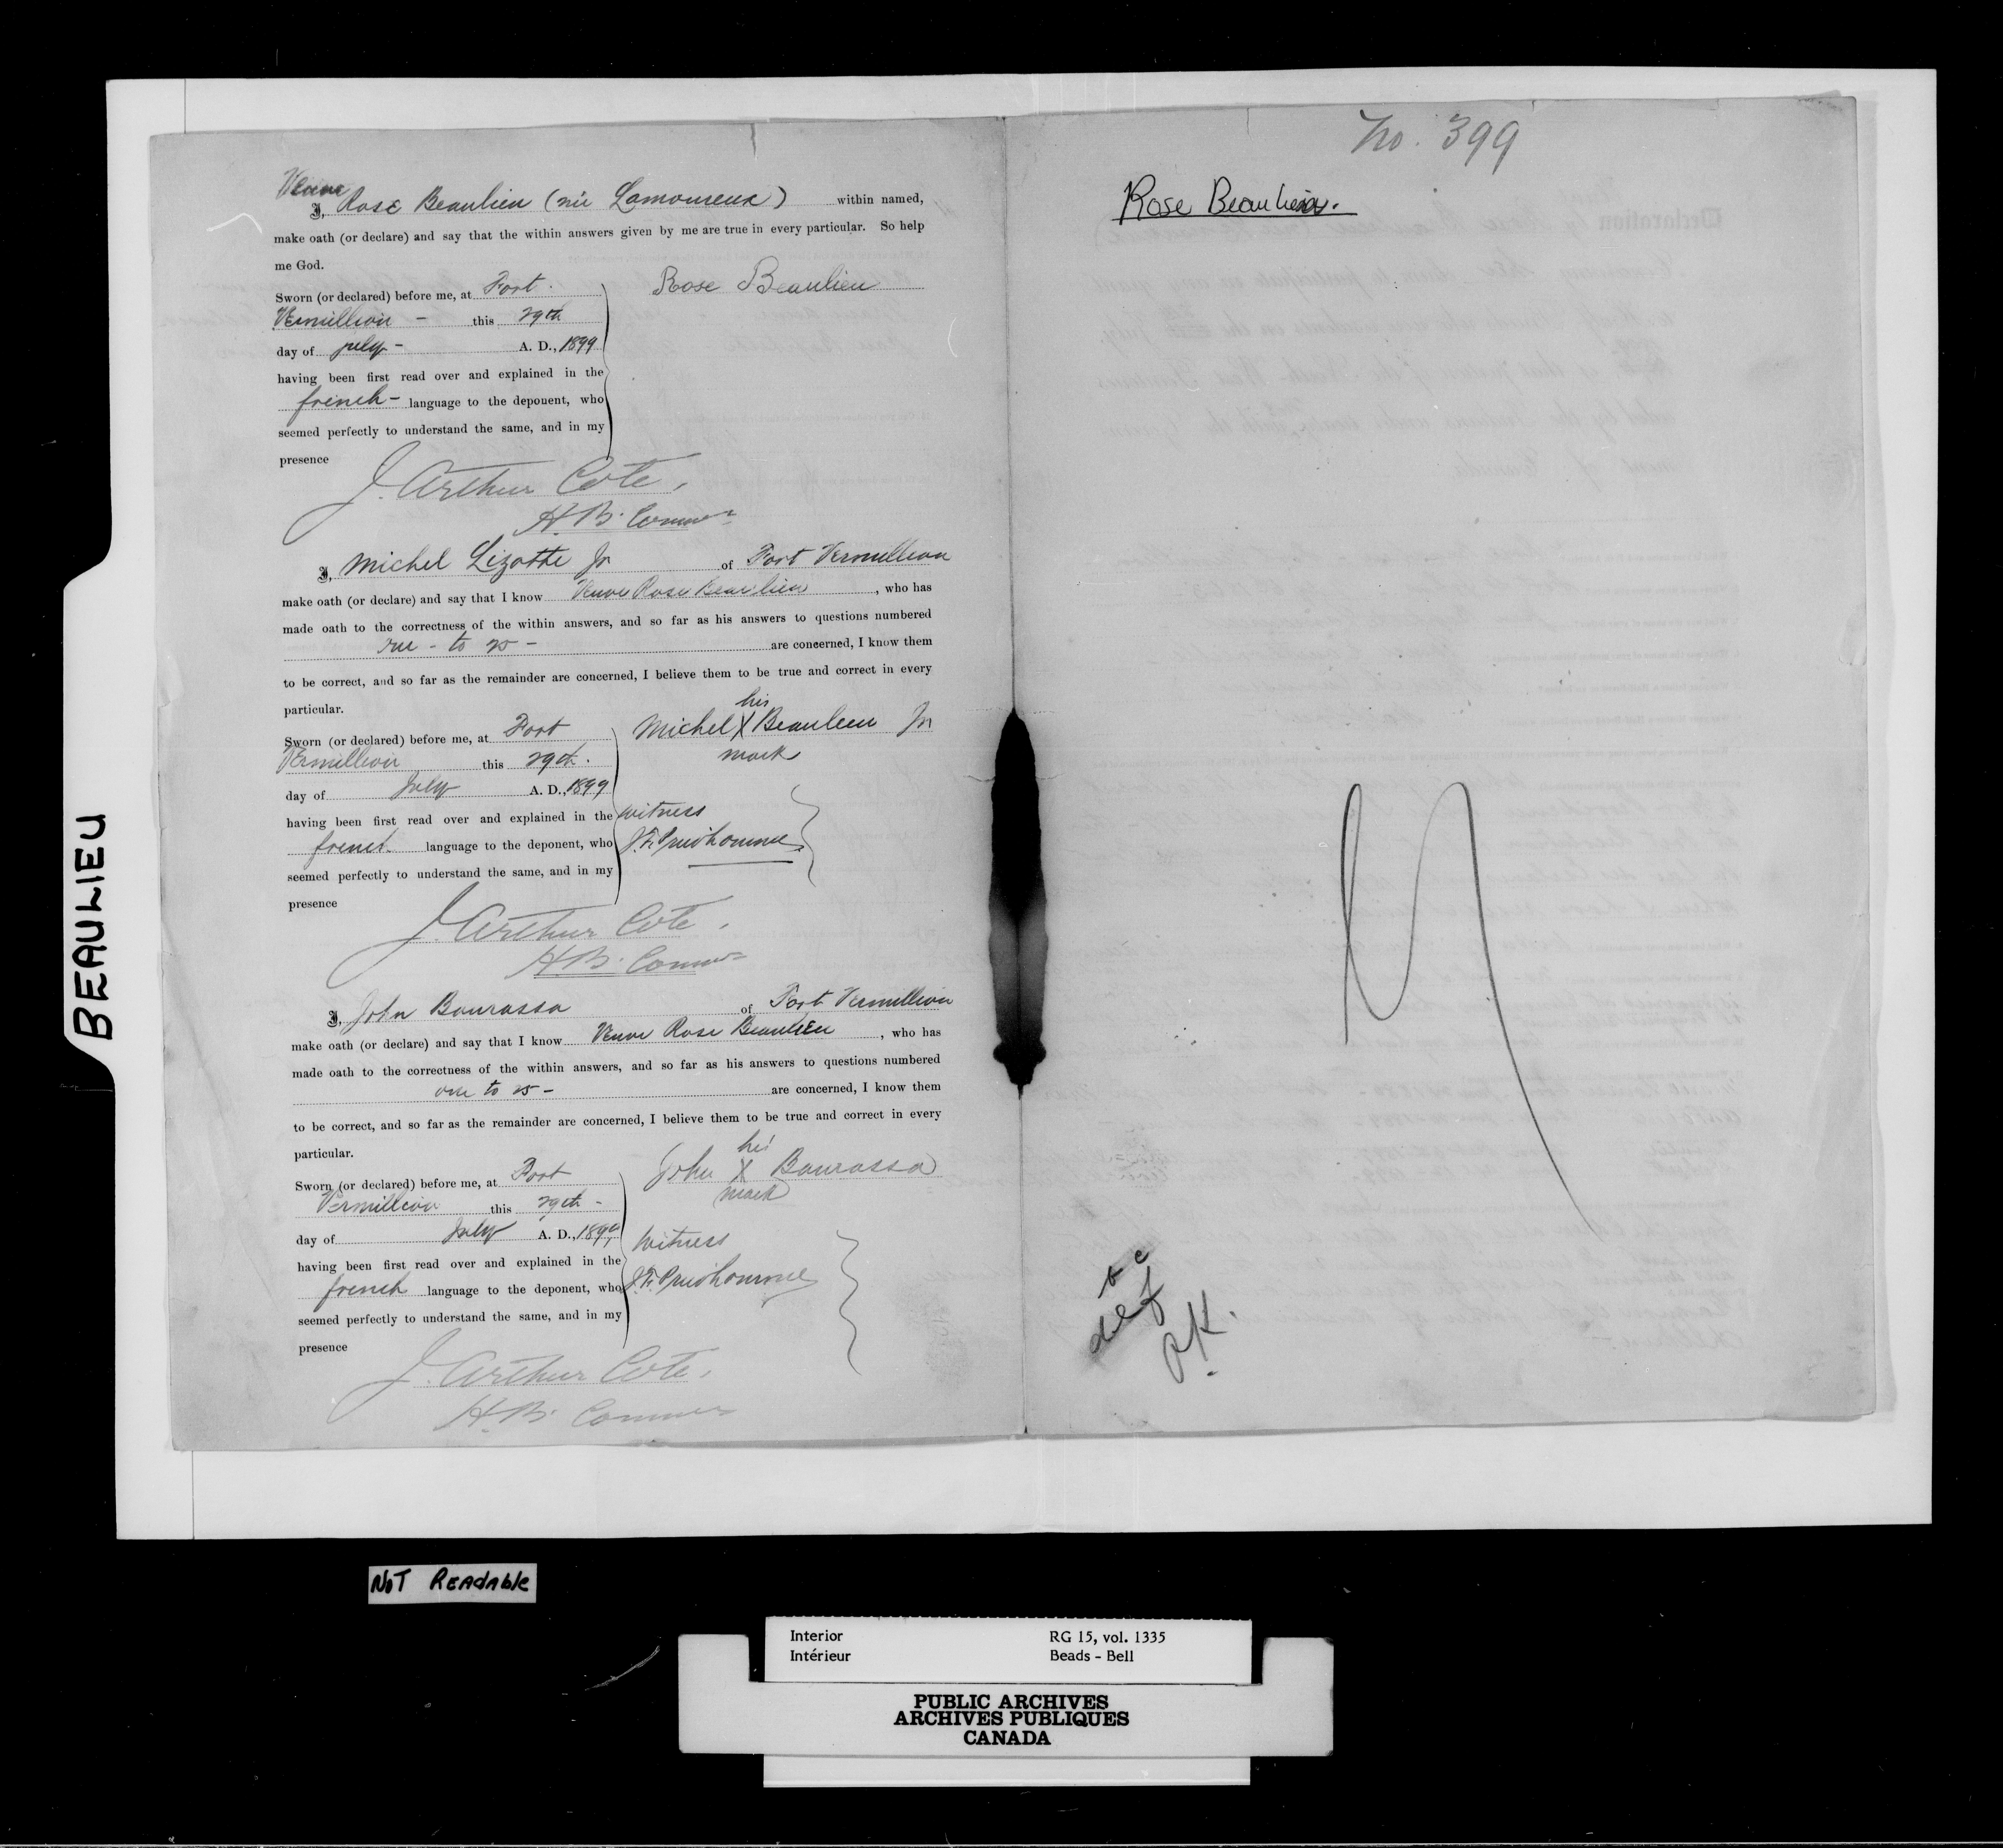 Veuve
I, Rose Beaulieu (née Lamoureux) within named,
make oath (or declare) and say that the within answers given by me are true in every particular. So help
me God.
Sworn (or declared) before me, at Fort
Vermillion - this 29th
day of july - A. D., 1899
having been first read over and explained in the
french - language to the deponent, who
seemed perfectly to understand the same, and in my
presence
Rose Beaulieu
J. Arthur Coté,
H. B. Commr
I, Michel Lizotte Jr of Fort Vermillion
make oath (or declare) and say that I know Veuve Rose Beaulieu, who has
made oath to the correctness of the within answers, and so far as his answers to questions numbered
one - to 25 - are concerned, I know them
to be correct, and so far as the remainder are concerned, I believe them to be true and correct in every
particular.
Sworn (or declared) before me, at Fort
Vermillion this 29th.
day of July A. D., 1899
having been first read over and explained in the
french language to the deponent, who
seemed perfectly to understand the same, and in my
presence
his
Michel X Beaulieu Jr
mark
witness
J. F. Prudhomme
J. Arthur Coté,
H. B. Commr
I, John Bourassa of Fort Vermillion
make oath (or declare) and say that I know Veuve Rose Beaulieu, who has
made oath to the correctness of the within answers, and so far as his answers to questions numbered
one to 25 - are concerned, I know them
to be correct, and so far as the remainder are concerned, I believe them to be true and correct in every
particular.
Sworn (or declared) before me, at Fort
Vermillion this 29th -
day of July A. D., 1899
having been first read over and explained in the
french language to the deponent, who
seemed perfectly to understand the same, and in my
presence
his
John X Bourassa
mark
Witness
J. F. Prudhomme
J. Arthur Coté,
H. B. Commr
No. 399
Rose Beaulieu.
b c
def
O.K.
BEAULIEU
NOT READABLE
Interior RG 15, vol. 1335
Intérieur Beads - Bell
PUBLIC ARCHIVES
ARCHIVES PUBLIQUES
CANADA